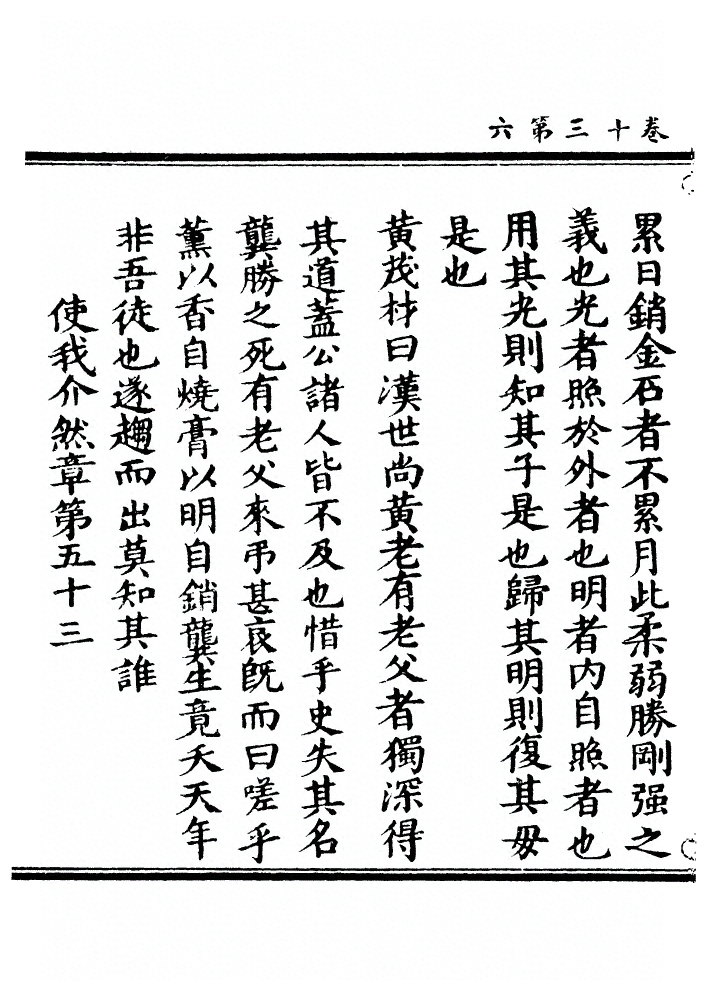 卷十三第六
累日銷金石者不累月此柔弱勝剛强之
義也光者照於外者也明者内自照者也
用其光則知其子是也歸其明則復其母
是也
黃茂材曰漢世尚黃老有老父者獨深得
其道蓋公諸人皆不及也惜乎史失其名
龔勝之死有老父來弔甚哀旣而曰嗟乎
薰以香自燒膏以明自銷龔生竟夭天年
非吾徒也遂趨而出莫知其誰
使我介然章第五十三